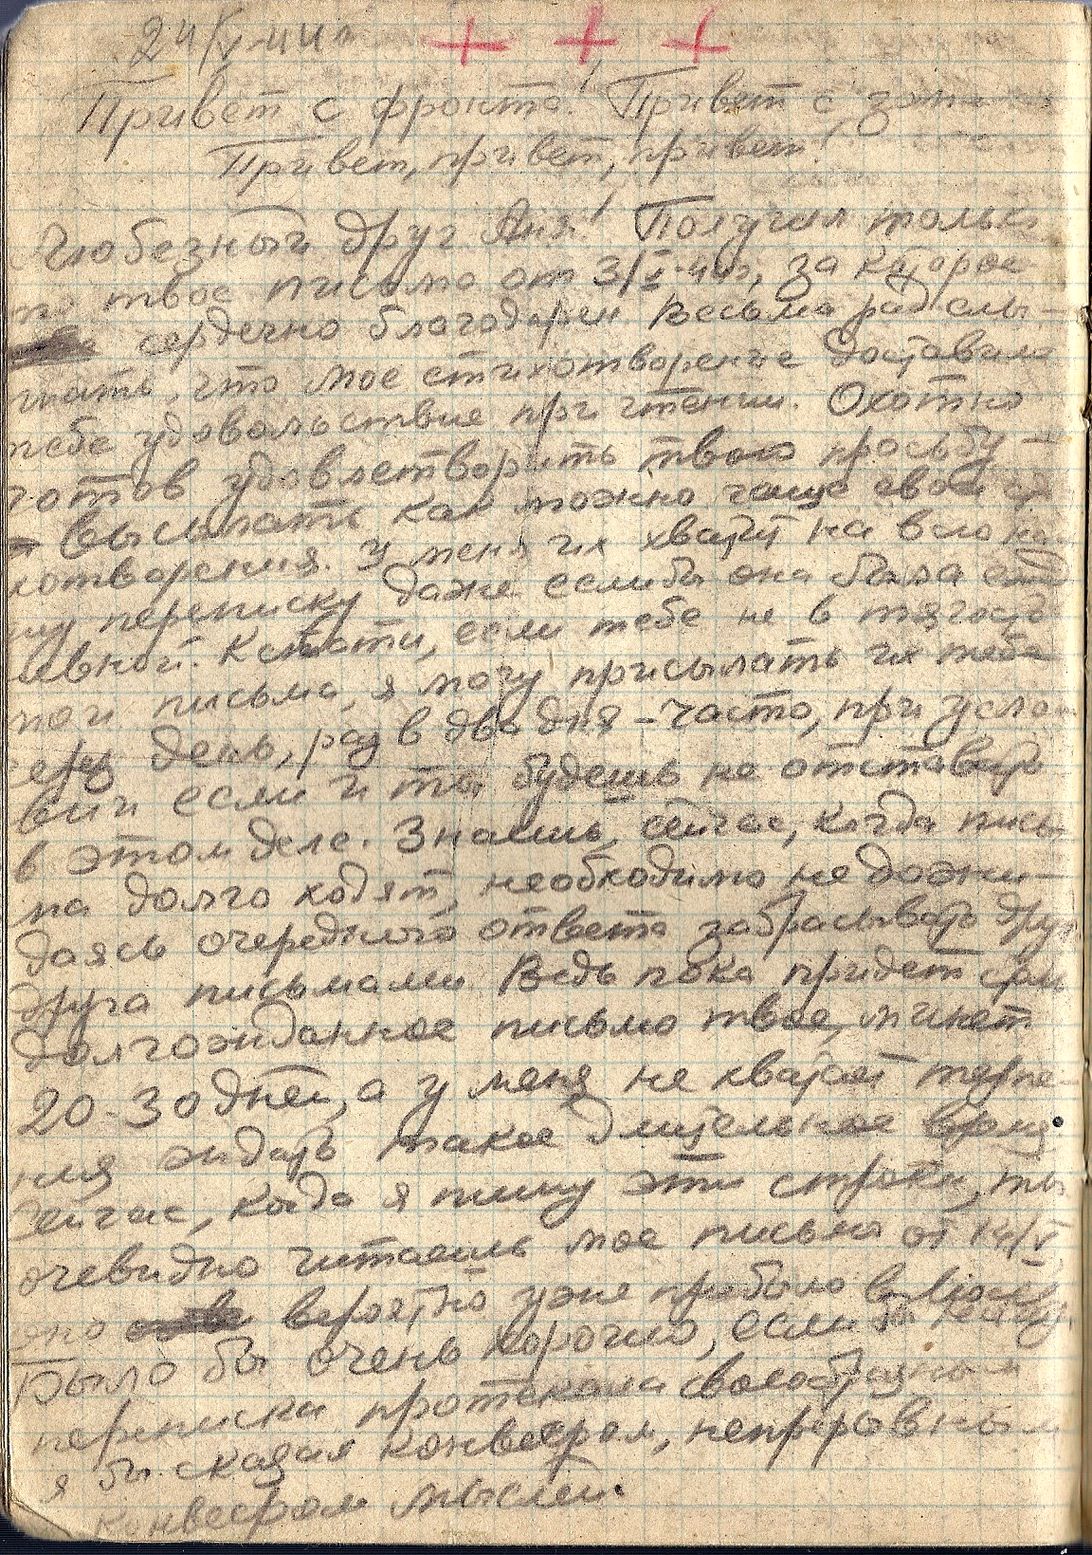 24/V-44г
+ + +
Привет с фронта! Привет с
Привет, привет, привет!
Любезный друг Аня! Получил только
что твое письмо от 3/V-44г, за которое
сердечно благодарен Весьма рад слы-
шать, что мое стихотворение доставило
тебе удовольствие при чтении. Охотно
готов удовлетворить твою просьбу -
высылать как можно чаще свои сти
хотворения. У меня их хватит на всю на
шу переписку даже если бы она была
евной. Кстати, если тебе не в тягость
мои письма, я могу присылать их тебе
через день, раз в два дня - часто, при усло
вии если и ты будешь не отставать
в этом деле. Знаешь, сейчас, когда пись
ма долго ходят, необходимо не дожи-
даясь очередного ответа забрасывать друг
друга письмами Ведь пока придет
долгожданное письмо твое, минет
20-30 дней, а у меня не хватает терпе-
ния ждать такое длительное время.
Сейчас, когда я пишу эти строки, ты
очевидно читаешь мое письмо от 14/V,
оно вероятно уже прибыло в
Было бы очень хорошо, если бы
переписки протекала своеобразным
я бы сказал конвеером, непрерывным
конвеером мыслей.